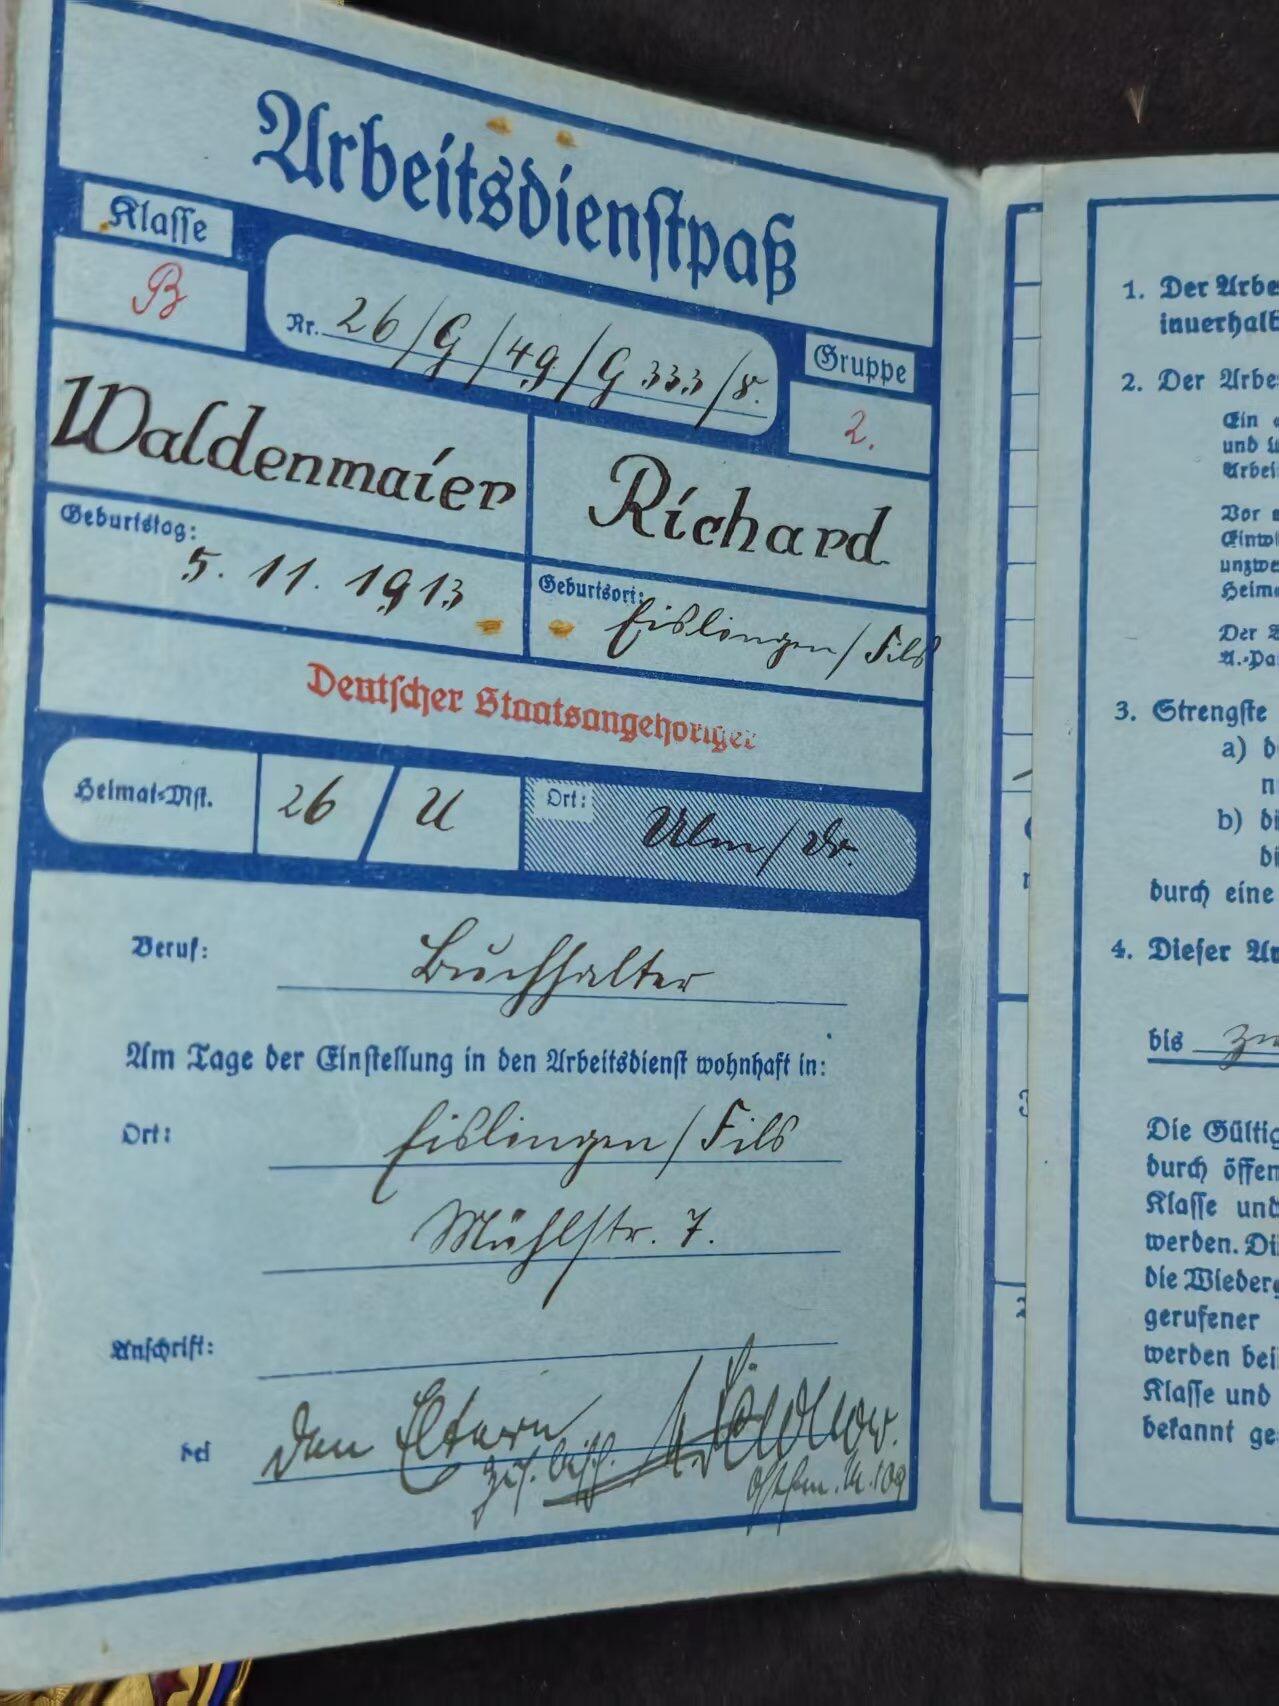 Arbeitsdienstpaß
Klasse
B
Nr. 26/G/49/G 333/8.
Gruppe
2.
Waldenmaier Richard
Geburtstag:
5. 11. 1913
Geburtsort:
Eislingen/Fils
Deutscher Staatsangehöriger
Heimat-Mst. 26 / U
Ort: Ulm/
Beruf: Buchhalter
Am Tage der Einstellung in den Arbeitsdienst wohnhaft in:
Ort: Eislingen/Fils
Mühlstr. 7.
Anschrift:
bei den Eltern
1. Der Arbe
innerhalb
2. Der Arbe
Ein
und
Arbei
Vor
Einwi
unzwe
Heima
Der
A.-Pa
3. Strengste
a) d
n
b) di
di
durch eine
4. Dieser Ar
bis
Die Gültig
durch öffen
Klasse und
werden. Di
die Wiederg
gerufener
werden bei
Klasse und
bekannt ge